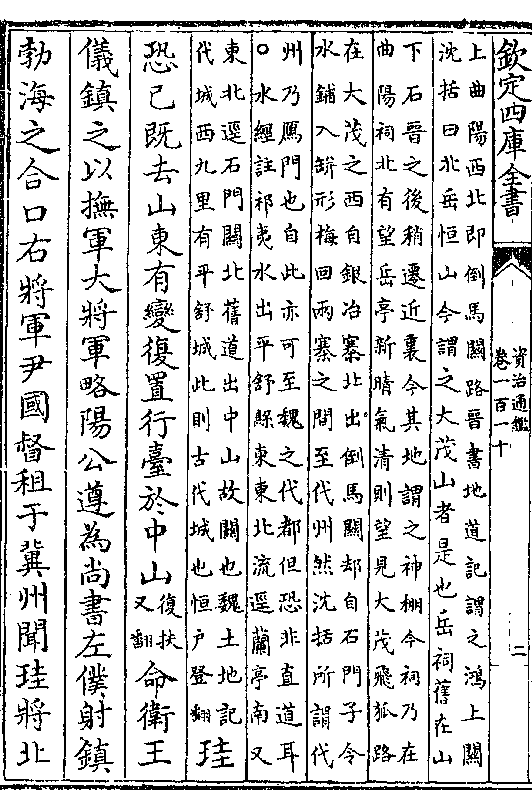 欽定四庫全書
資治通鑑
卷一百一十
二
上曲陽西北即倒馬關路晉書地道記謂之鴻上關
沈括曰北岳恒山今謂之大茂山者是也岳祠舊在山
下石晉之後稍遷近裏今其地謂之神棚今祠乃在
曲陽祠北有望岳亭新晴氣清則望見大茂飛狐路
在大茂之西自銀冶寨北出倒馬關却自石門子令
水鋪入缾形梅回兩寨之間至代州然沈括所謂代
州乃鴈門也自此亦可至魏之代都但恐非直道耳
○水經註祁夷水出平舒縣東東北流逕蘭亭南又
東北逕石門關北舊道出中山故關也魏土地記
代城西九里有平舒城此則古代城也恒戶登翻
珪
恐已既去山東有變復置行臺於中山
復扶
又翻
命衛王
儀鎮之以撫軍大將軍略陽公遵為尚書左僕射鎮
勃海之合口右將軍尹國督租于冀州聞珪將北